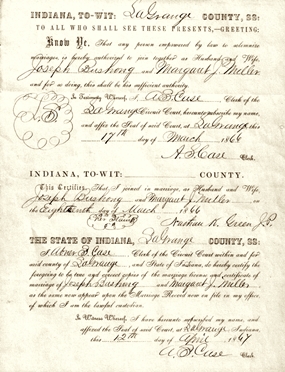 INDIANA, TO-WIT: LaGrange COUNTY, SS:
TO ALL WHO SHALL SEE THESE PRESENTS,—GREETING:
Know Ye. That any person empowered by law to solemnize
marriages, is hereby authorized to join together as Husband and Wife,
Joseph Bushong and Margaret J. Miller
and for so doing, this shall be his sufficient authority.
In Testimony Whereof, I, A. F. Case Clerk of the
LaGrange Circuit Court, hereunto subscribe my name,
and affix the Seal of said Court, at LaGrange this
17th day of March 1866
L.S.
A. F. Case Clerk.
INDIANA, TO-WIT: COUNTY.
This Certifies, That I joined in marriage, as Husband and Wife,
Joseph Bushong and Margaret J. Miller
on the Eighteenth of March 1866
Nathan R. Green J.P.
THE STATE OF INDIANA, LaGrange COUNTY, SS:
I, A. F. Case Clerk of the Circuit Court within and for
said county of LaGrange and State of Indiana, do hereby certify the
foregoing to be true and correct copies of the marriage license and certificate of
marriage of Joseph Bushong and Margaret J. Miller
as the same now appear upon the Marriage Record now on file in my office,
of which I am the lawful custodian.
In Witness Whereof, I have hereunto subscribed my name, and
affixed the Seal of said Court, at LaGrange Indiana,
this 12th day of April 1867
A. F. Case Clerk.